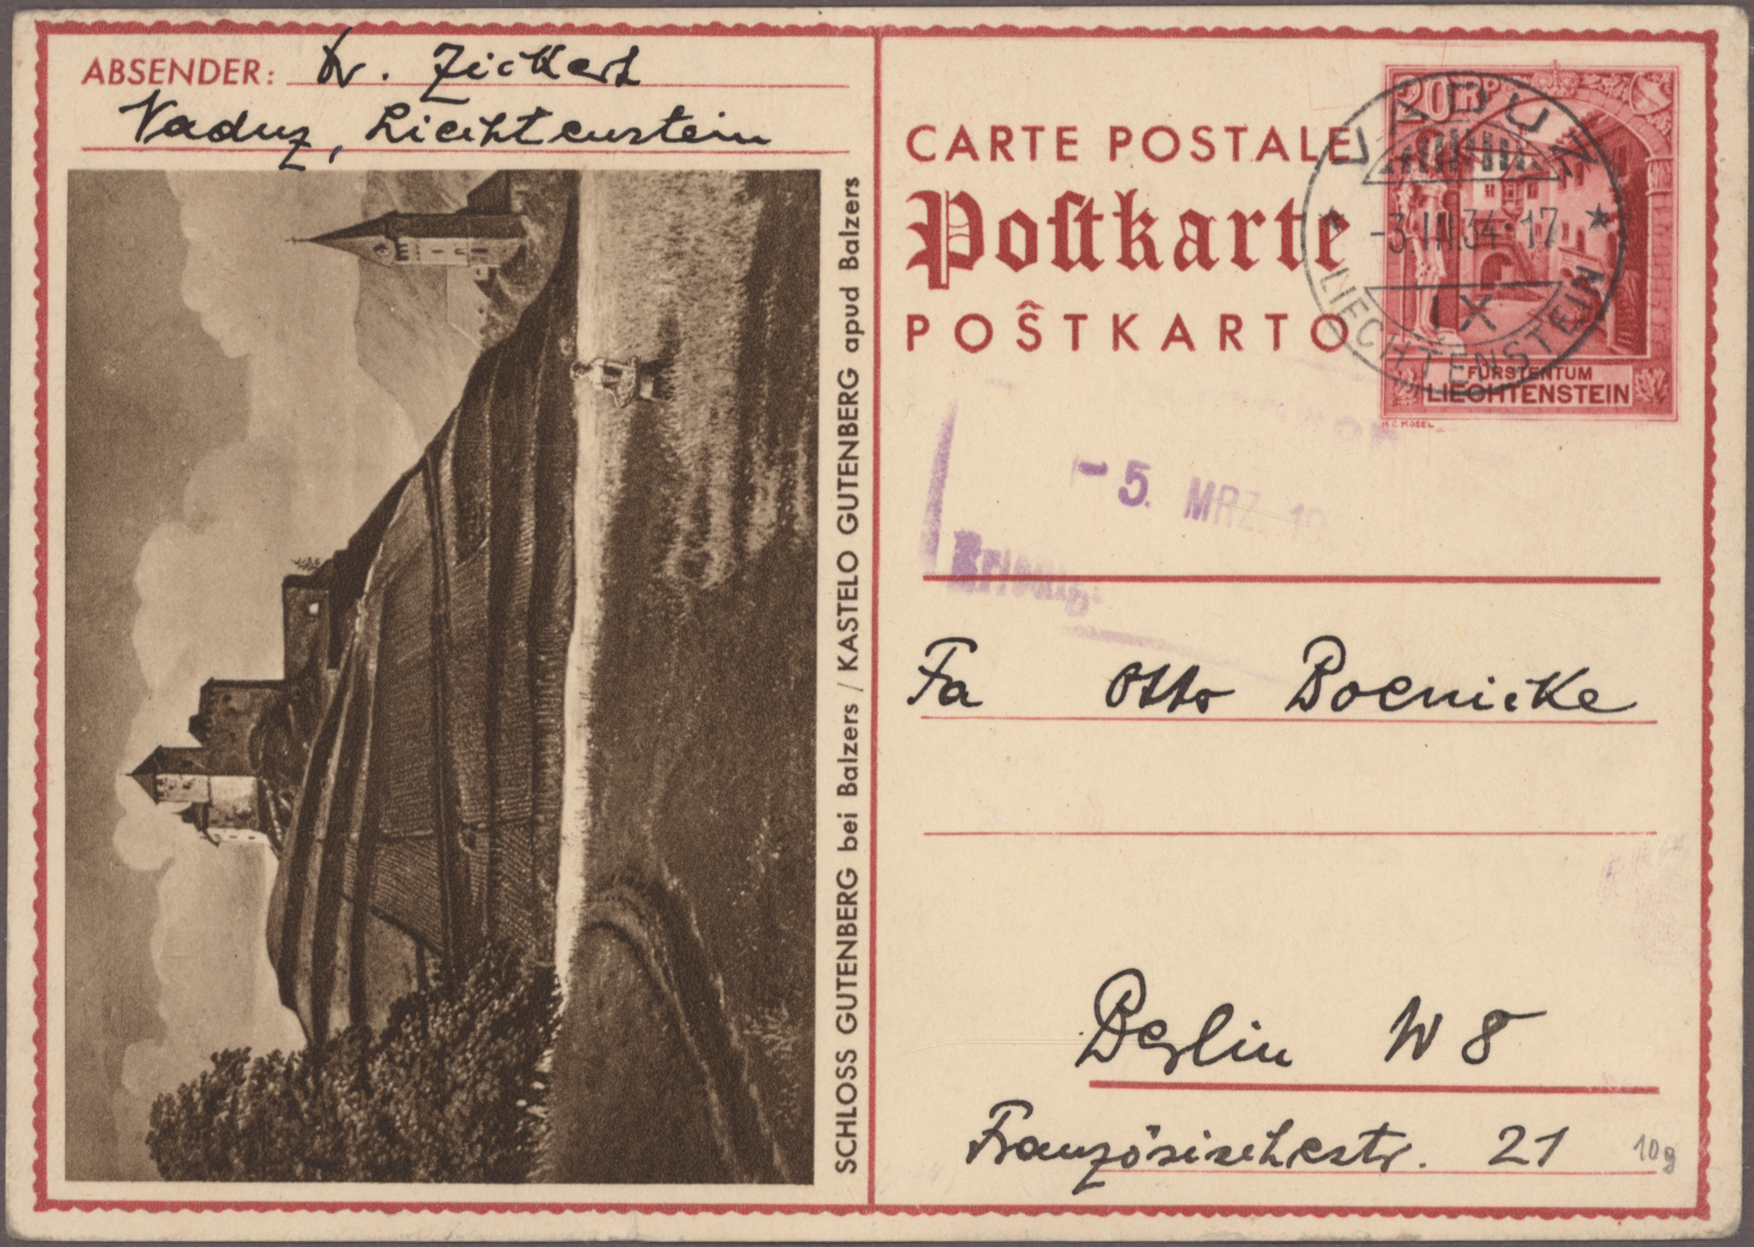 ABSENDER: Dr. Zickert
Vaduz, Liechtenstein
SCHLOSS GUTENBERG bei Balzers / KASTELO GUTENBERG apud Balzers
CARTE POSTALE
Poſtkarte
POŜTKARTO
20 RP
VADUZ
-3.III.34-17
IX
LIECHTENSTEIN
FÜRSTENTUM
LIECHTENSTEIN
H.C. KOSEL
- 5. MRZ. 19
Erledig
Fa Otto Boenicke
Berlin W 8
Französischestr. 21
10g